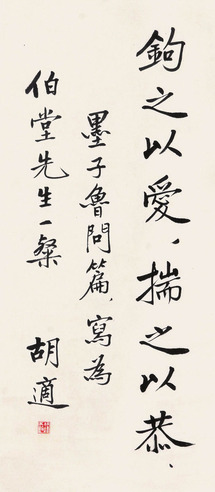 鉤之以愛、揣之以恭、
墨子魯問篇、寫為
伯堂先生一粲
胡適